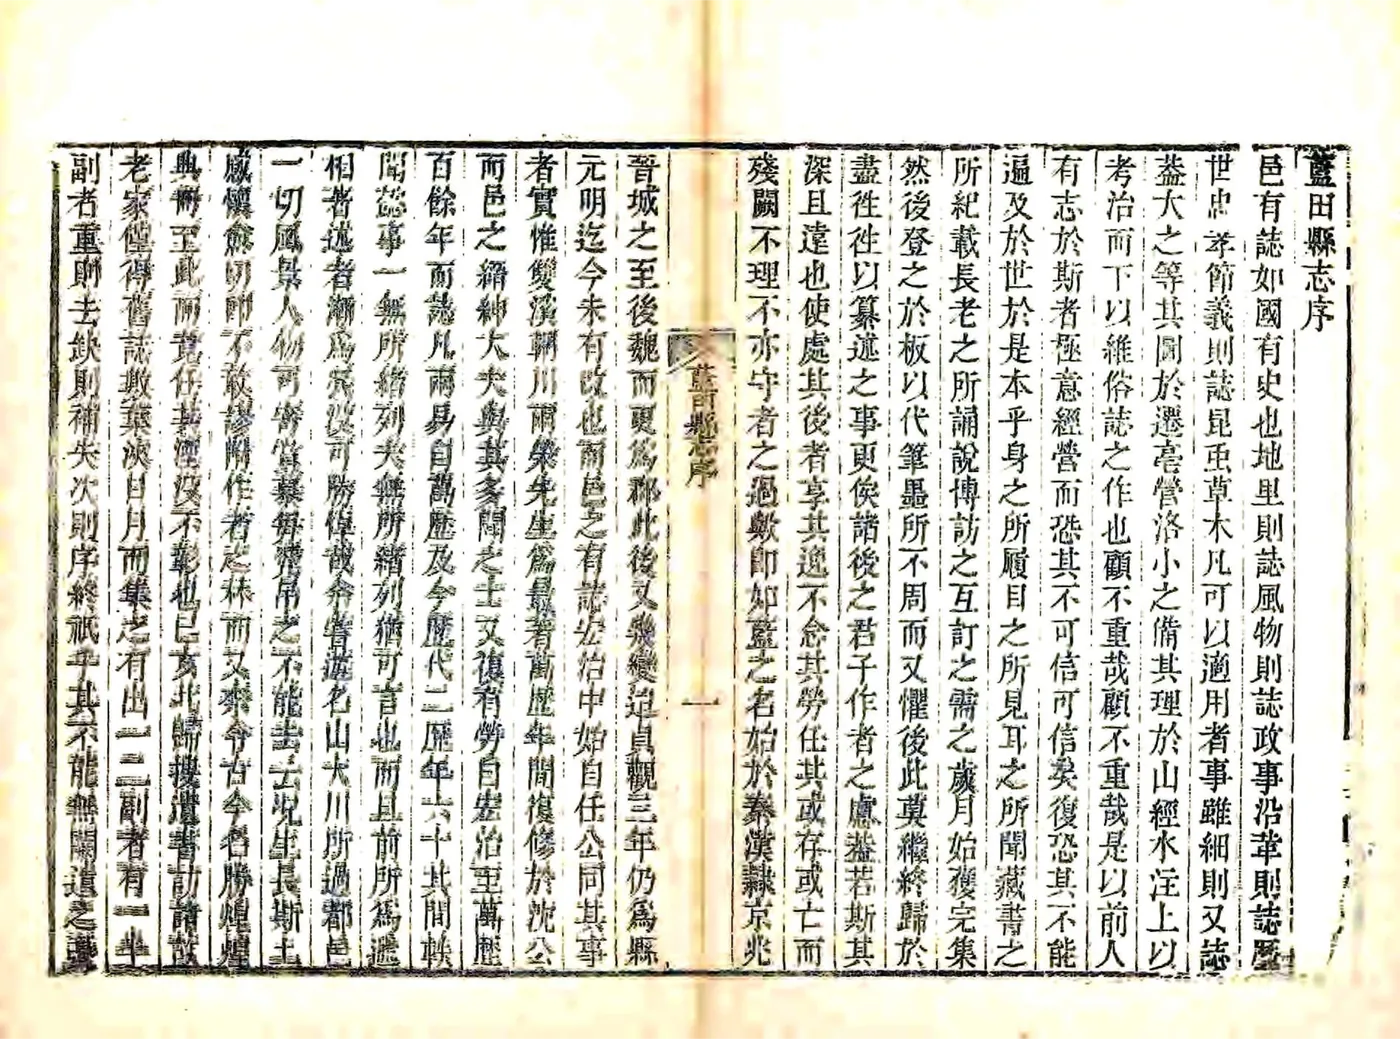 藍田縣志序
邑有誌如國有史也地里則誌風物則誌政事沿革則誌歷
世忠孝節義則誌昆虫草木凡可以適用者事雖細則又誌
葢大之等其圖於遷亳營洛小之備其理於山經水注上以
考治而下以維俗誌之作也顧不重哉顧不重哉是以前人
有志於斯者極意經營而恐其不可信可信矣復恐其不能
遍及於世於是本乎身之所履目之所見耳之所聞藏書之
所紀載長老之所誦說博訪之互訂之需之歲月始獲完集
然後登之於板以代筆墨所不周而又懼後此莫繼終歸於
盡徃徃以纂述之事更俟諸後之君子作者之慮葢若斯其
深且遠也使處其後者享其逸不念其勞任其或存或亡而
殘闕不理不亦守者之過歟即如藍之名始於秦漢隸京兆
藍田縣志序
一
晉城之至後魏而更爲郡此後又幾變迨貞觀三年仍爲縣
元明迄今未有改也而邑之有誌宏治中始自任公同其事
者實惟雙溪輞川兩榮先生爲最著萬歷年間復修於沈公
而邑之縉紳大夫與其多聞之士又復有勞自宏治至萬歷
百餘年而誌凡兩易自萬歷及今歷代二歷年六十其間軼
聞懿事一無所緒列夫無所緒列猶可言也而且前所爲遞
相著述者漸爲 沒可勝悼哉余嘗遊名山大川所過都邑
一切風景人物可 嘗慕每憑吊之不能去云况生長斯土
感懷愈切即不敢謬附作者之林而又案今古今名勝煌煌
典冊至此而竟任其湮没不彰也已亥北歸搜遺書訪諸故
老家僅得舊誌數葉浹日月而集之有出一二副者有一半
副者重則去缺則補失次則序終祇乎其不能無闕遺之